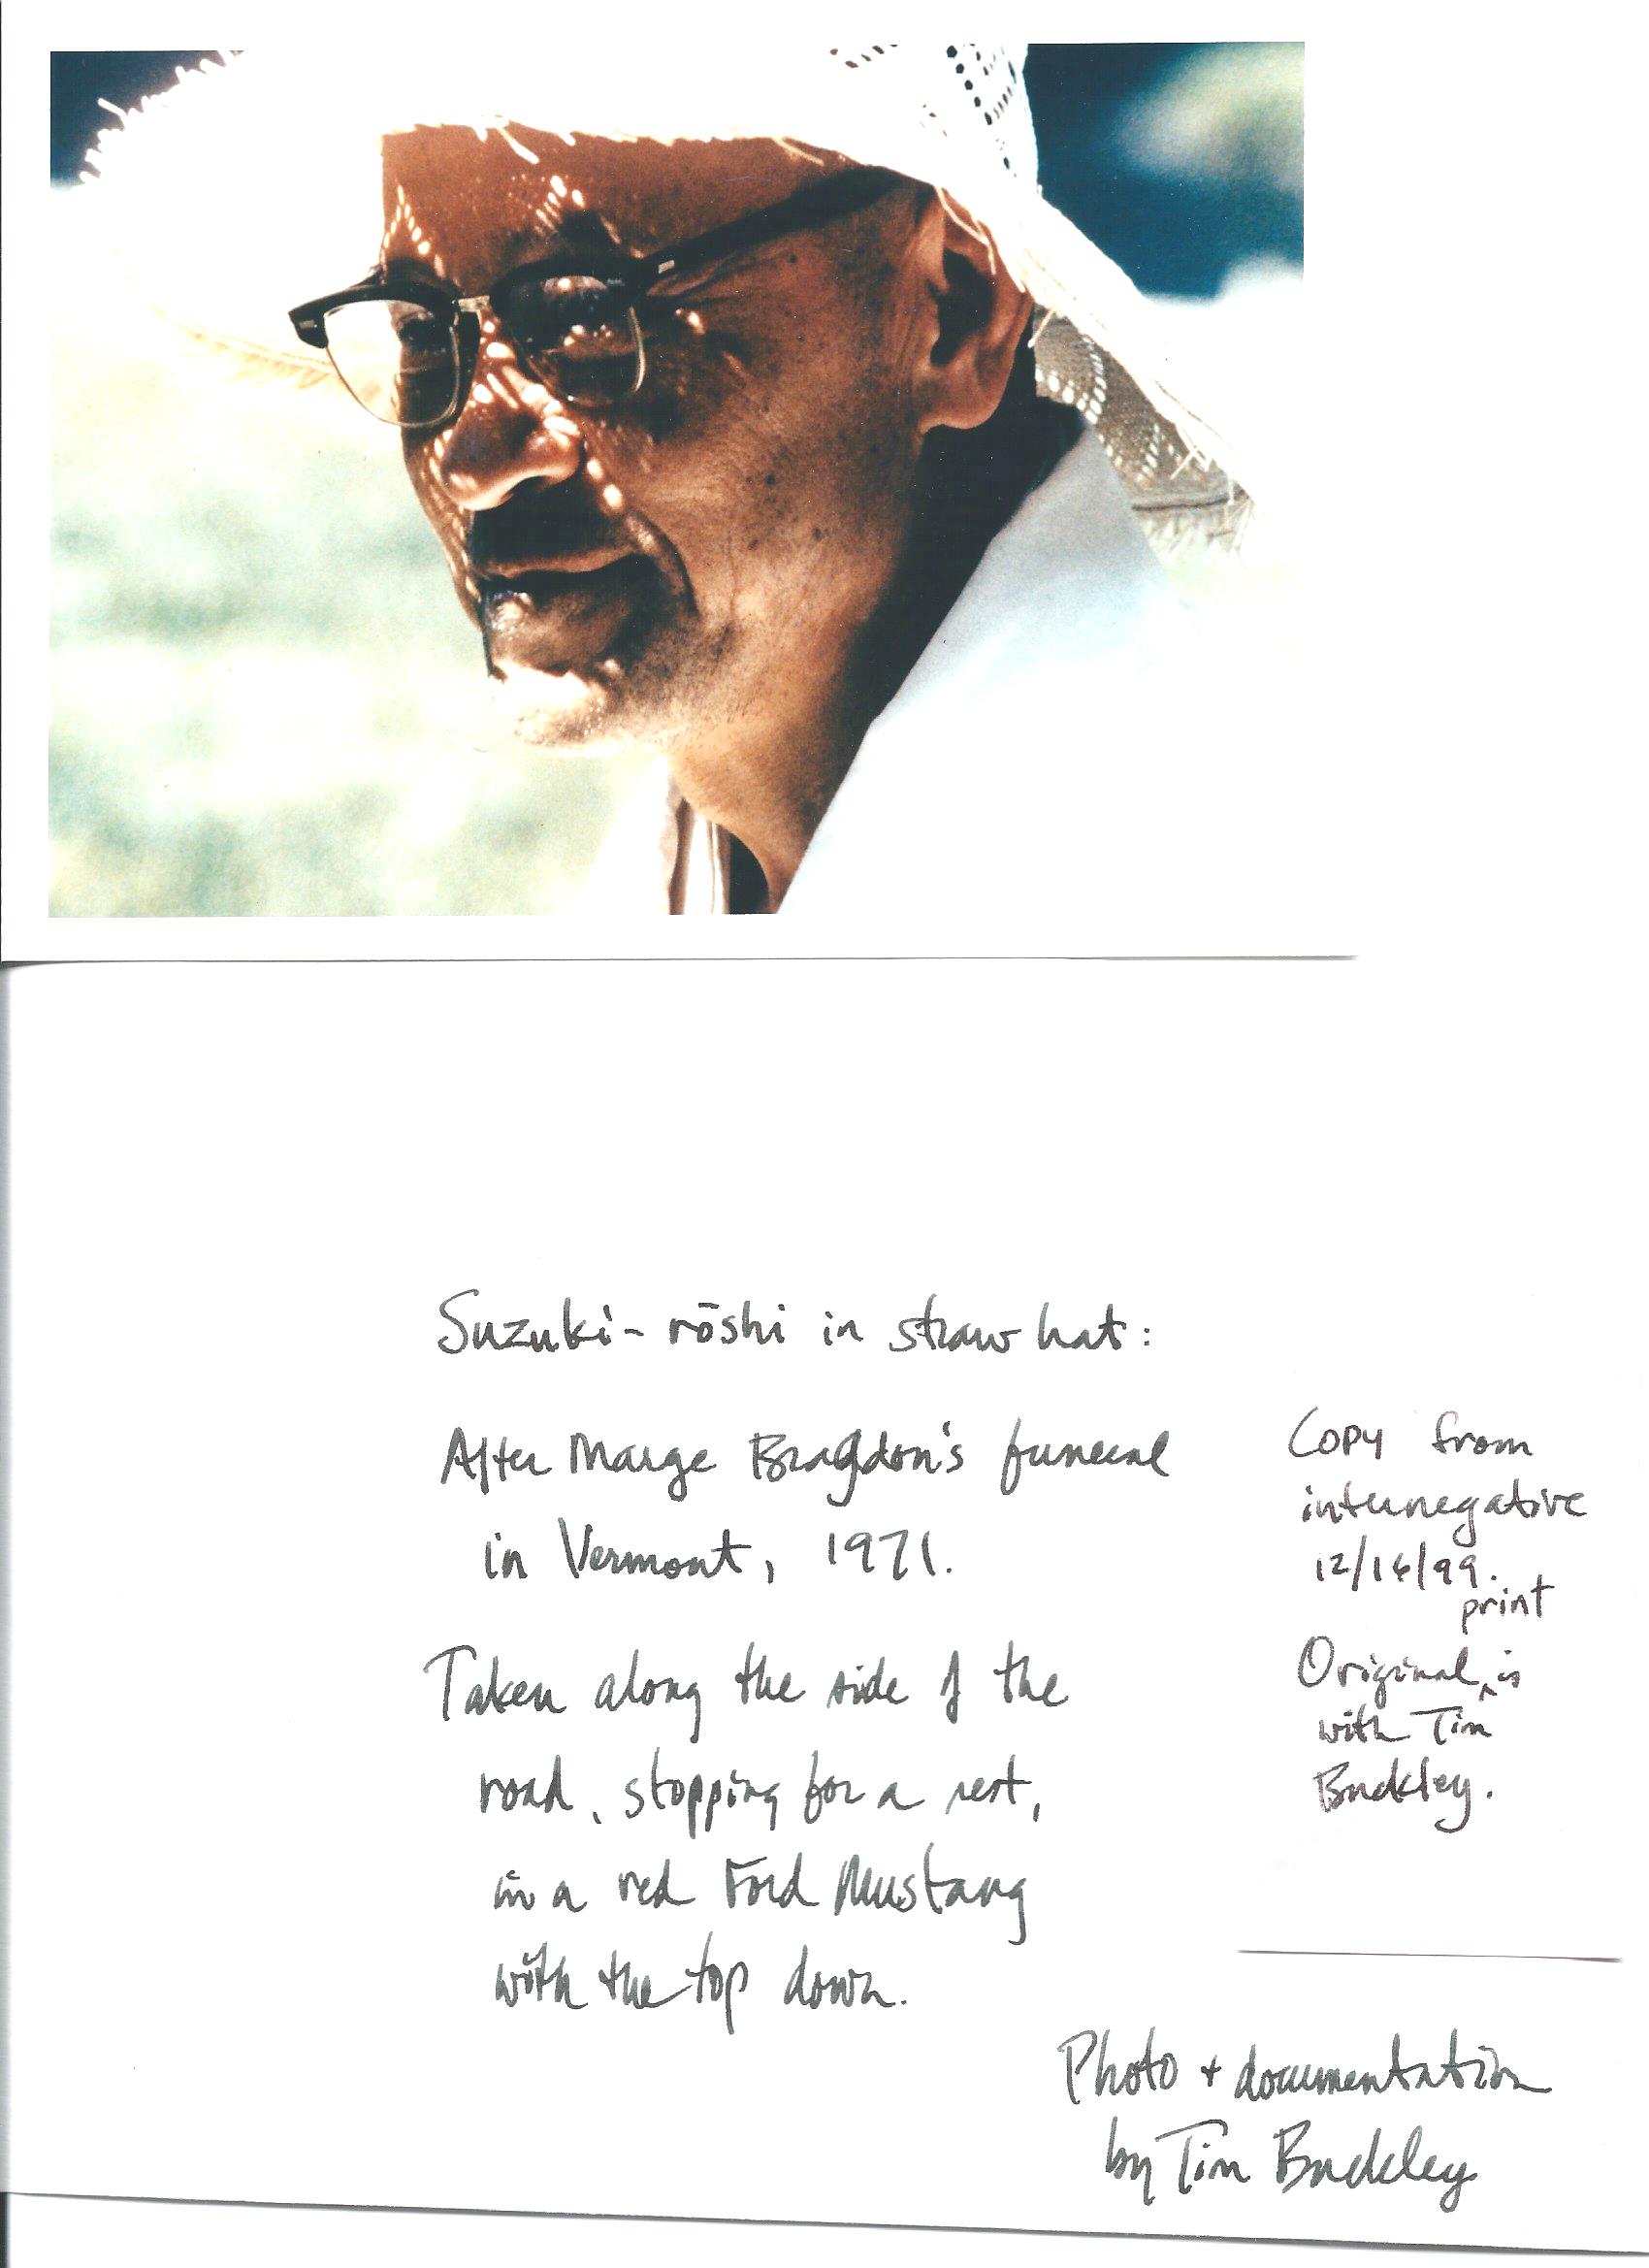 Suzuki-rōshi in straw hat:
After Marge Bragdon's funeral
in Vermont, 1971.
Taken along the side of the
road, stopping for a rest,
in a red Ford Mustang
with the top down.
Copy from
internegative
12/16/99.
print
Original ^ is
with Tim
Buckley.
Photo + documentation
by Tim Buckley